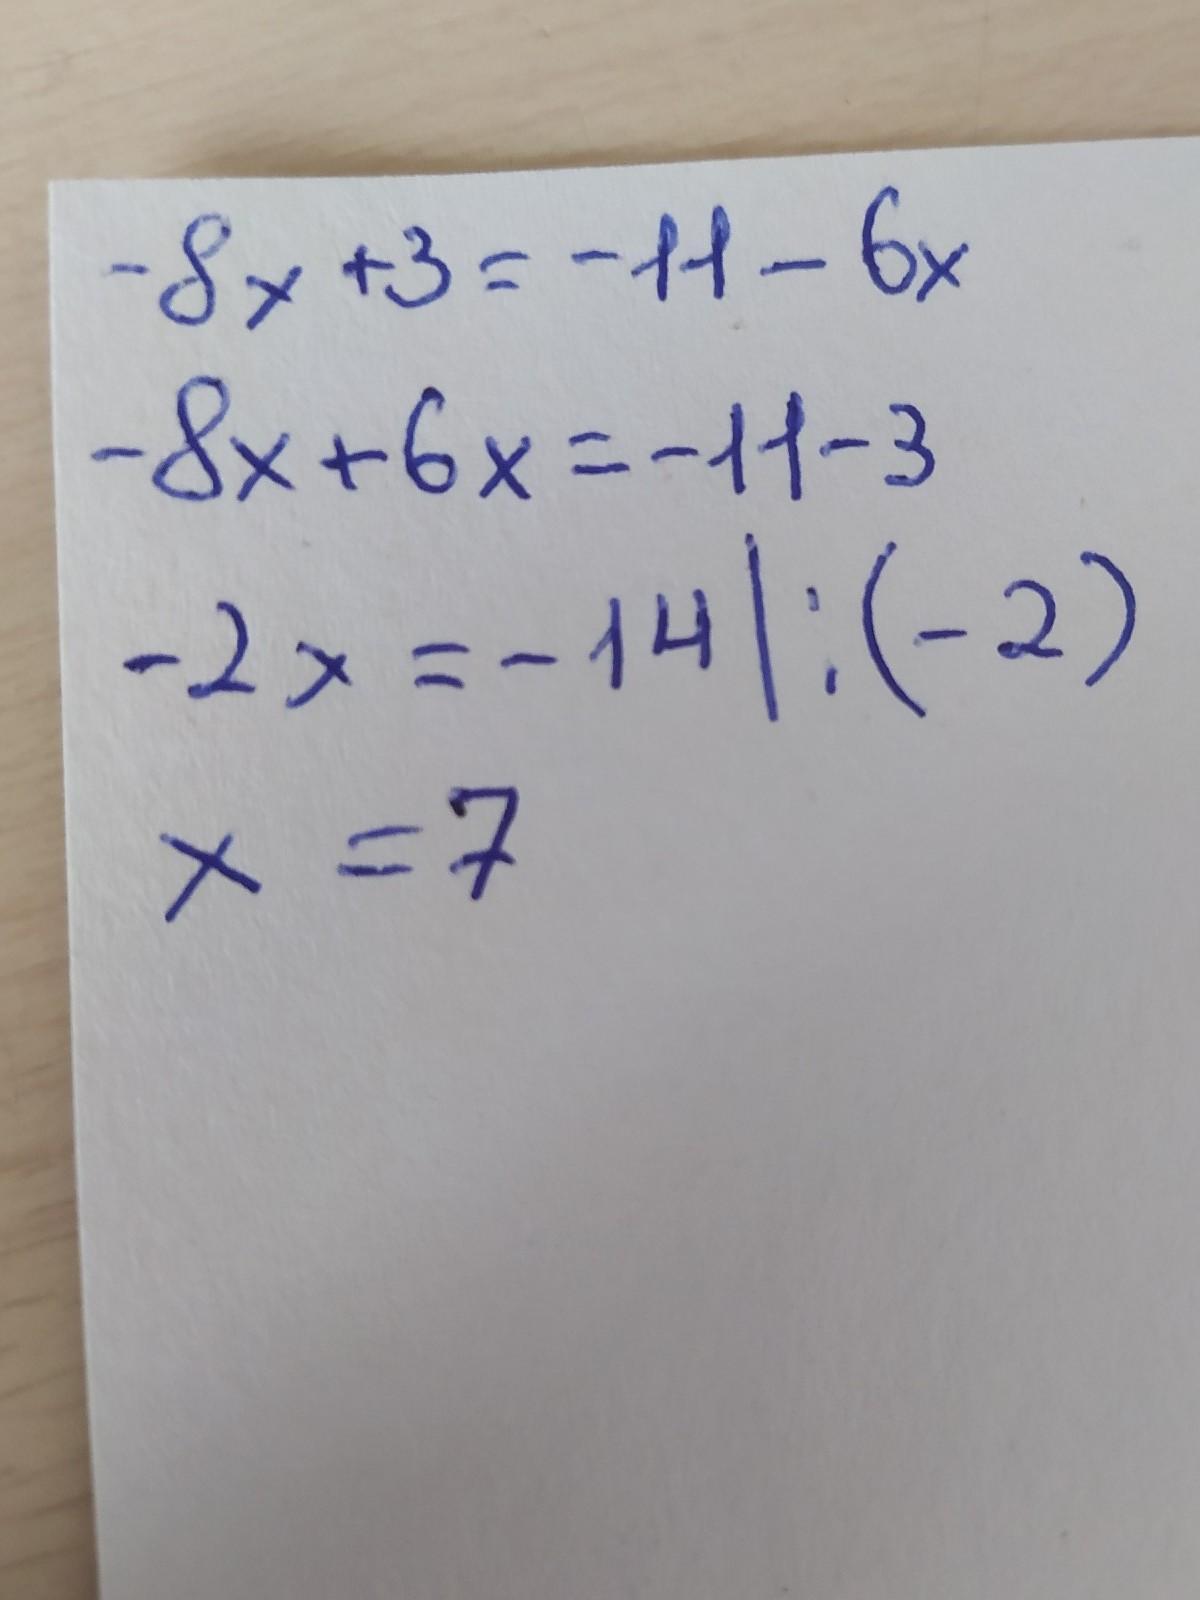 -8x+3=-11-6x
-8x+6x=-11-3
-2x=-14|:(-2)
x=7